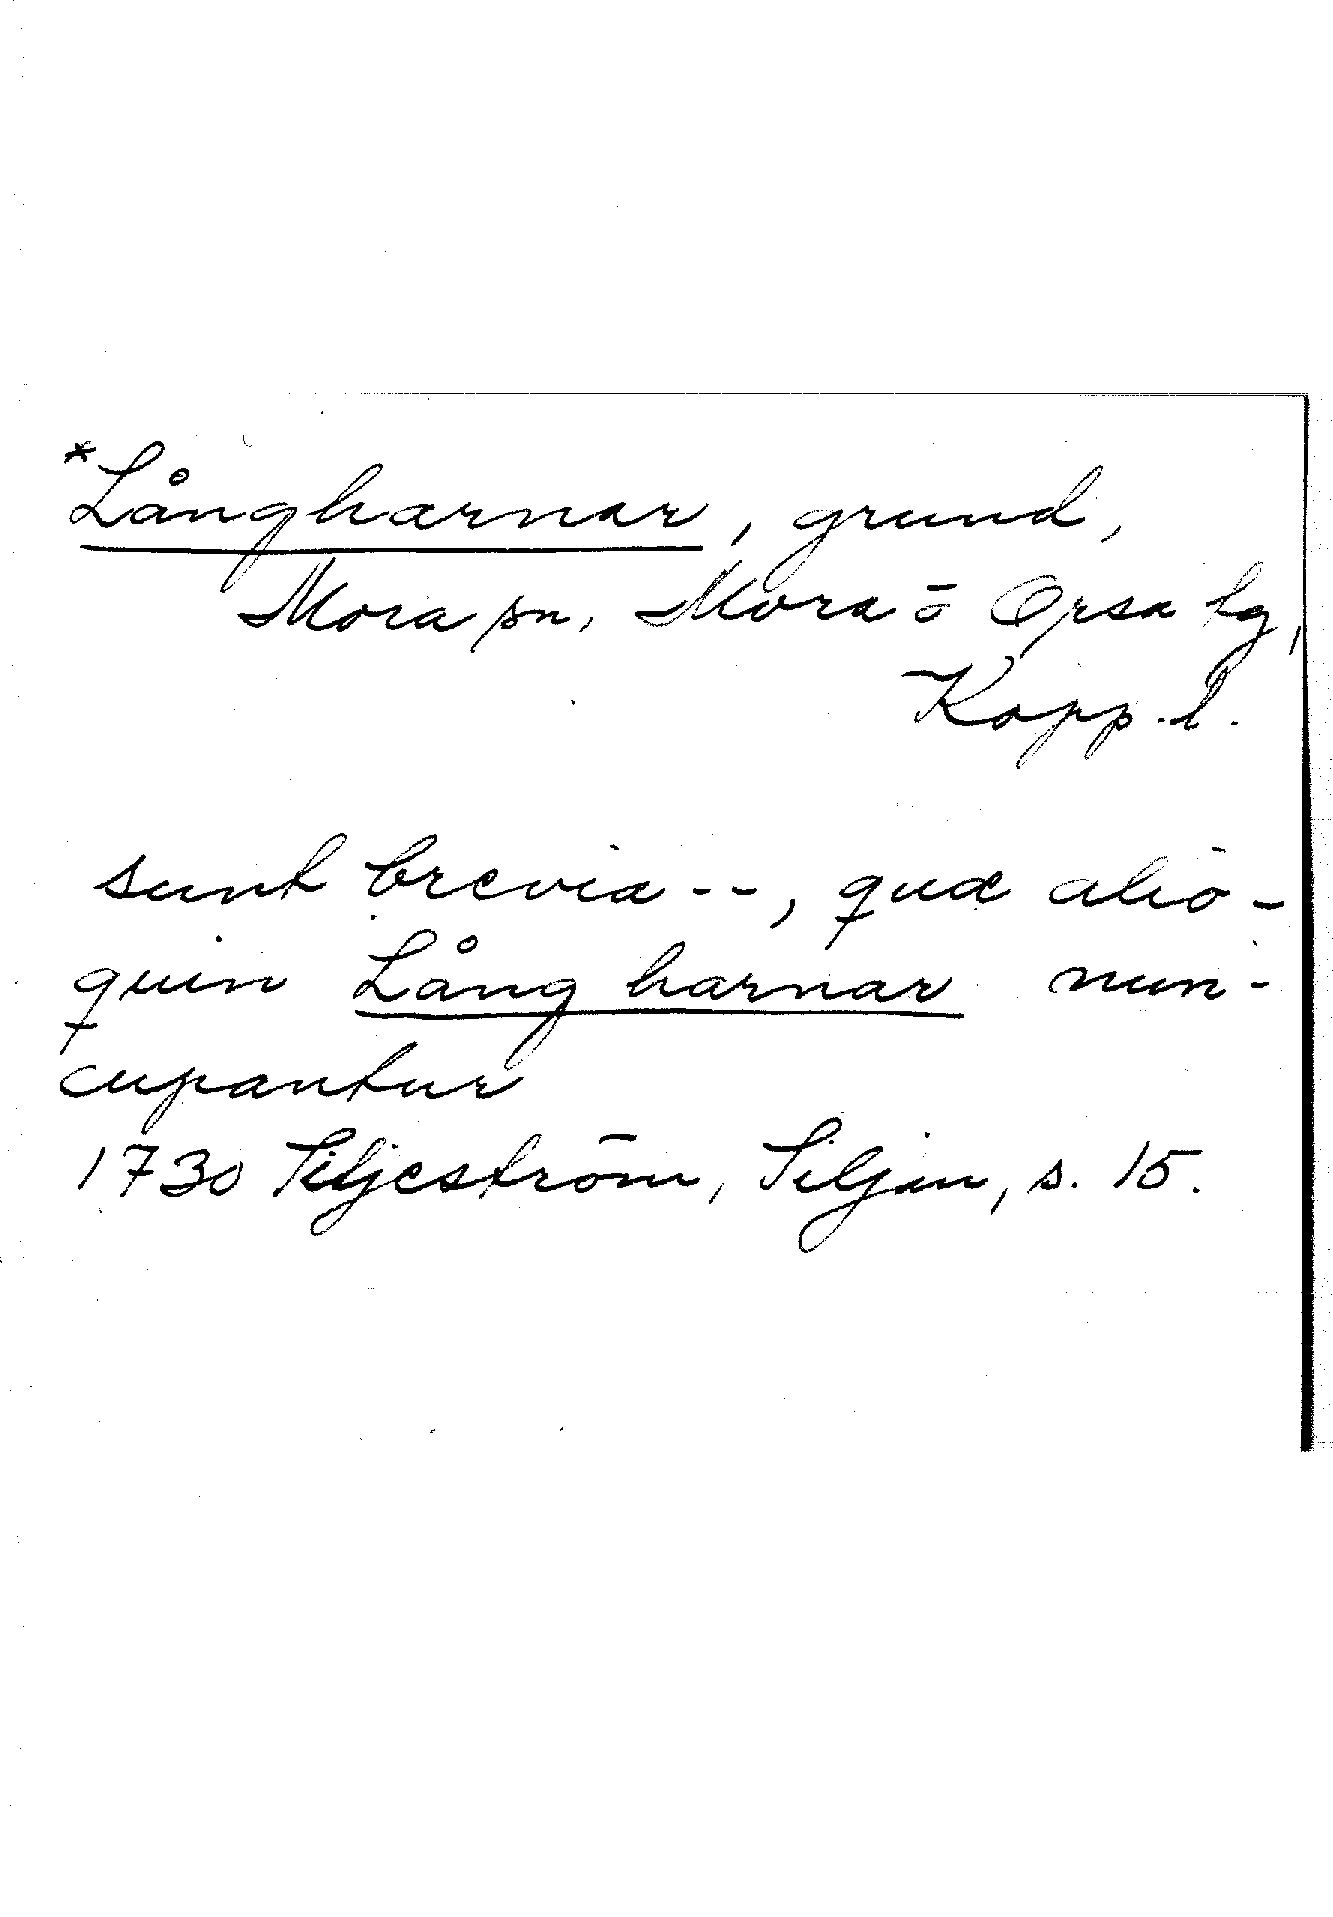 *Långharnar, grund,
Mora sn, Mora o Orsa tg,
Kopp. l.
sunt brevia --, quæ alio-
quin Lång harnar nun-
cupantur
1730 Siljeström, Siljan, s. 15.